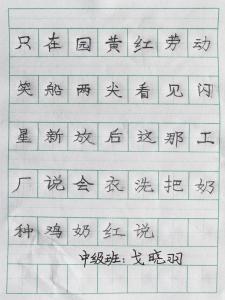 只在园黄红劳动
笑船两尖看见闪
星新放后这那工
厂说会衣洗把奶
种鸡奶红说
中级班:戈晓羽